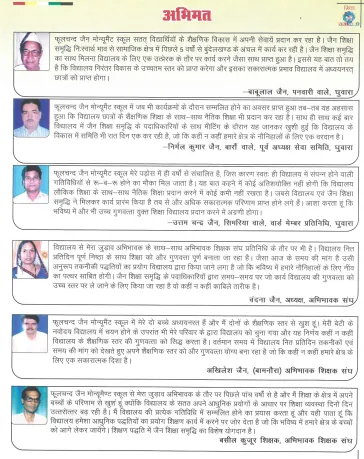 अभिमत
फूलचन्द जैन मोन्यूमेंट स्कूल सतत् विद्यार्थियों के शैक्षणिक विकास में अपनी सेवायें प्रदान कर रहा है। जैन शिक्षा
समृद्धि निःस्वार्थ भाव से सामाजिक क्षेत्र में पिछले 6 वर्षों से बुन्देलखण्ड के अचंल में कार्य कर रही है। जैन शिक्षा
समृद्धि का साथ मिलना विद्यालय के लिए एक उत्प्रेरक के तौर पर कार्य करने जैसा साथ प्राप्त हुआ है। इससे यह बात तो तय
है कि विद्यालय निरंतर विकास के उच्चतम स्तर को प्राप्त करेगा और इसका सकारात्मक प्रभाव विद्यालय में अध्ययनरत्
छात्रों को प्राप्त होगा।
–बाबूलाल जैन, पनवारी वाले, घुवारा
फूलचन्द जैन मोन्यूमेंट स्कूल में जब भी कार्यक्रमों के दौरान सम्मलित होने का अवसर प्राप्त हुआ तब–तब यह अहसास
हुआ कि विद्यालय छात्रों के शैक्षणिक शिक्षा के साथ–साथ नैतिक शिक्षा भी प्रदान कर रहा है। साथ ही साथ कई बार
विद्यालय में जैन शिक्षा समृद्धि के पदाधिकारियों के साथ मीटिंग के दौरान यह जानकर खुशी हुई कि विद्यालय के
विकास में समिति भी रात दिन एक कर रही है, जो कि कहीं न कहीं हमारे क्षेत्र के नौनिहालों के लिए एक वरदान है।
–निर्मल कुमार जैन, बारौं वाले, पूर्व अध्यक्ष सेवा समिति, घुवारा
फूलचन्द जैन मोन्यूमेंट स्कूल मेरे पड़ोस में ही वर्षों से संचालित है, जिस कारण स्वतः ही विद्यालय में संपन्न होने वाली
गतिविधियों से रू–ब–रू होने का मौका मिल जाता है। यह बात कहने में कोई अतिशयोक्ति नहीं होगी कि विद्यालय
लौकिक शिक्षा के साथ–साथ नैतिक शिक्षा प्रदान करने में कोई कमी नहीं रखता है। जबसे विद्यालय एवं जैन शिक्षा
समृद्धि ने मिलकर कार्य प्रारंभ किया है तब से और अधिक सकारात्मक परिणाम प्राप्त होने लगे हैं। आशा करता हूँ कि
भविष्य में और भी उच्च गुणवत्ता युक्त शिक्षा विद्यालय प्रदान करने में अग्रणी होगा।
–उत्तम चन्द जैन, सिमरिया वाले, वार्ड मेम्बर प्रतिनिधि, घुवारा
विद्यालय से मेरा जुड़ाव अभिभावक के साथ–साथ अभिभावक शिक्षक संघ प्रतिनिधि के तौर पर भी है। विद्यालय नित
प्रतिदिन पूर्ण निष्ठा के साथ शिक्षा को और गुणवत्ता पूर्ण बनाता जा रहा है। जैसा आज के समय की मांग है उसी
अनुरूप तकनीकी पद्धतियों का प्रयोग विद्यालय द्वारा किया जाने लगा है जो कि भविष्य में हमारे नौनिहालों के लिए नींव
का पत्थर साबित होगी। जैन शिक्षा समृद्धि के पदाधिकारियों द्वारा समय–समय पर जो कार्य विद्यालय की गुणवत्ता को
उच्च स्तर पर ले जाने के लिए किया जा रहा है वो कहीं न कहीं काबिले तारीफ है।
वंदना जैन, अध्यक्ष, अभिभावक संघ
फूलचन्द जैन मोन्यूमेंट स्कूल में मेरे दो बच्चे अध्ययनरत हैं और मैं दोनों के शैक्षणिक स्तर से खुश हूं। मेरी बेटी के
नवोदय विद्यालय में चयन होने के उपरांत भी मेरे परिवार के द्वारा विद्यालय को चुना गया और यह निर्णय कहीं न कहीं
विद्यालय के शैक्षणिक स्तर की गुणवत्ता को सिद्ध करता है। वर्तमान समय में विद्यालय नित प्रतिदिन तकनीकी एवं
समय की मांग को देखते हुए अपने शैक्षणिक स्तर को और गुणवत्ता योग्य बना रहा है जो कि कहीं न कहीं हमारे क्षेत्र के
लिए एक सकारात्मक दिशा है।
अखिलेश जैन, (बामनौरा) अभिभावक शिक्षक संघ
फूलचन्द जैन मोन्यूमेण्ट स्कूल से मेरा जुड़ाव अभिभावक के तौर पर पिछले पांच वर्षों से है और मैं शिक्षा के क्षेत्र में अपने
बच्चों के परिणाम से खुश हूं क्योंकि विद्यालय के सतत अपने आधुनिक प्रयोगों के आधार पर शिक्षा व्यवस्था दिनों दिन
उत्तरोत्तर बढ़ रही है। मैं विद्यालय की प्रत्येक गतिविधि में सम्मलित होने का प्रयास करता हूं और यही पाता हूं कि
विद्यालय हमेशा आधुनिक पद्धतियों का प्रयोग शिक्षण कार्य में करने पर जोर देता है जो कि भविष्य में हमारे क्षेत्र के बच्चों
को आगे लेकर जायेंगे। शिक्षण पद्धति में जैन शिक्षा समृद्धि का विशेष योगदान है।
बसील कुजूर शिक्षक, अभिभावक शिक्षक संघ